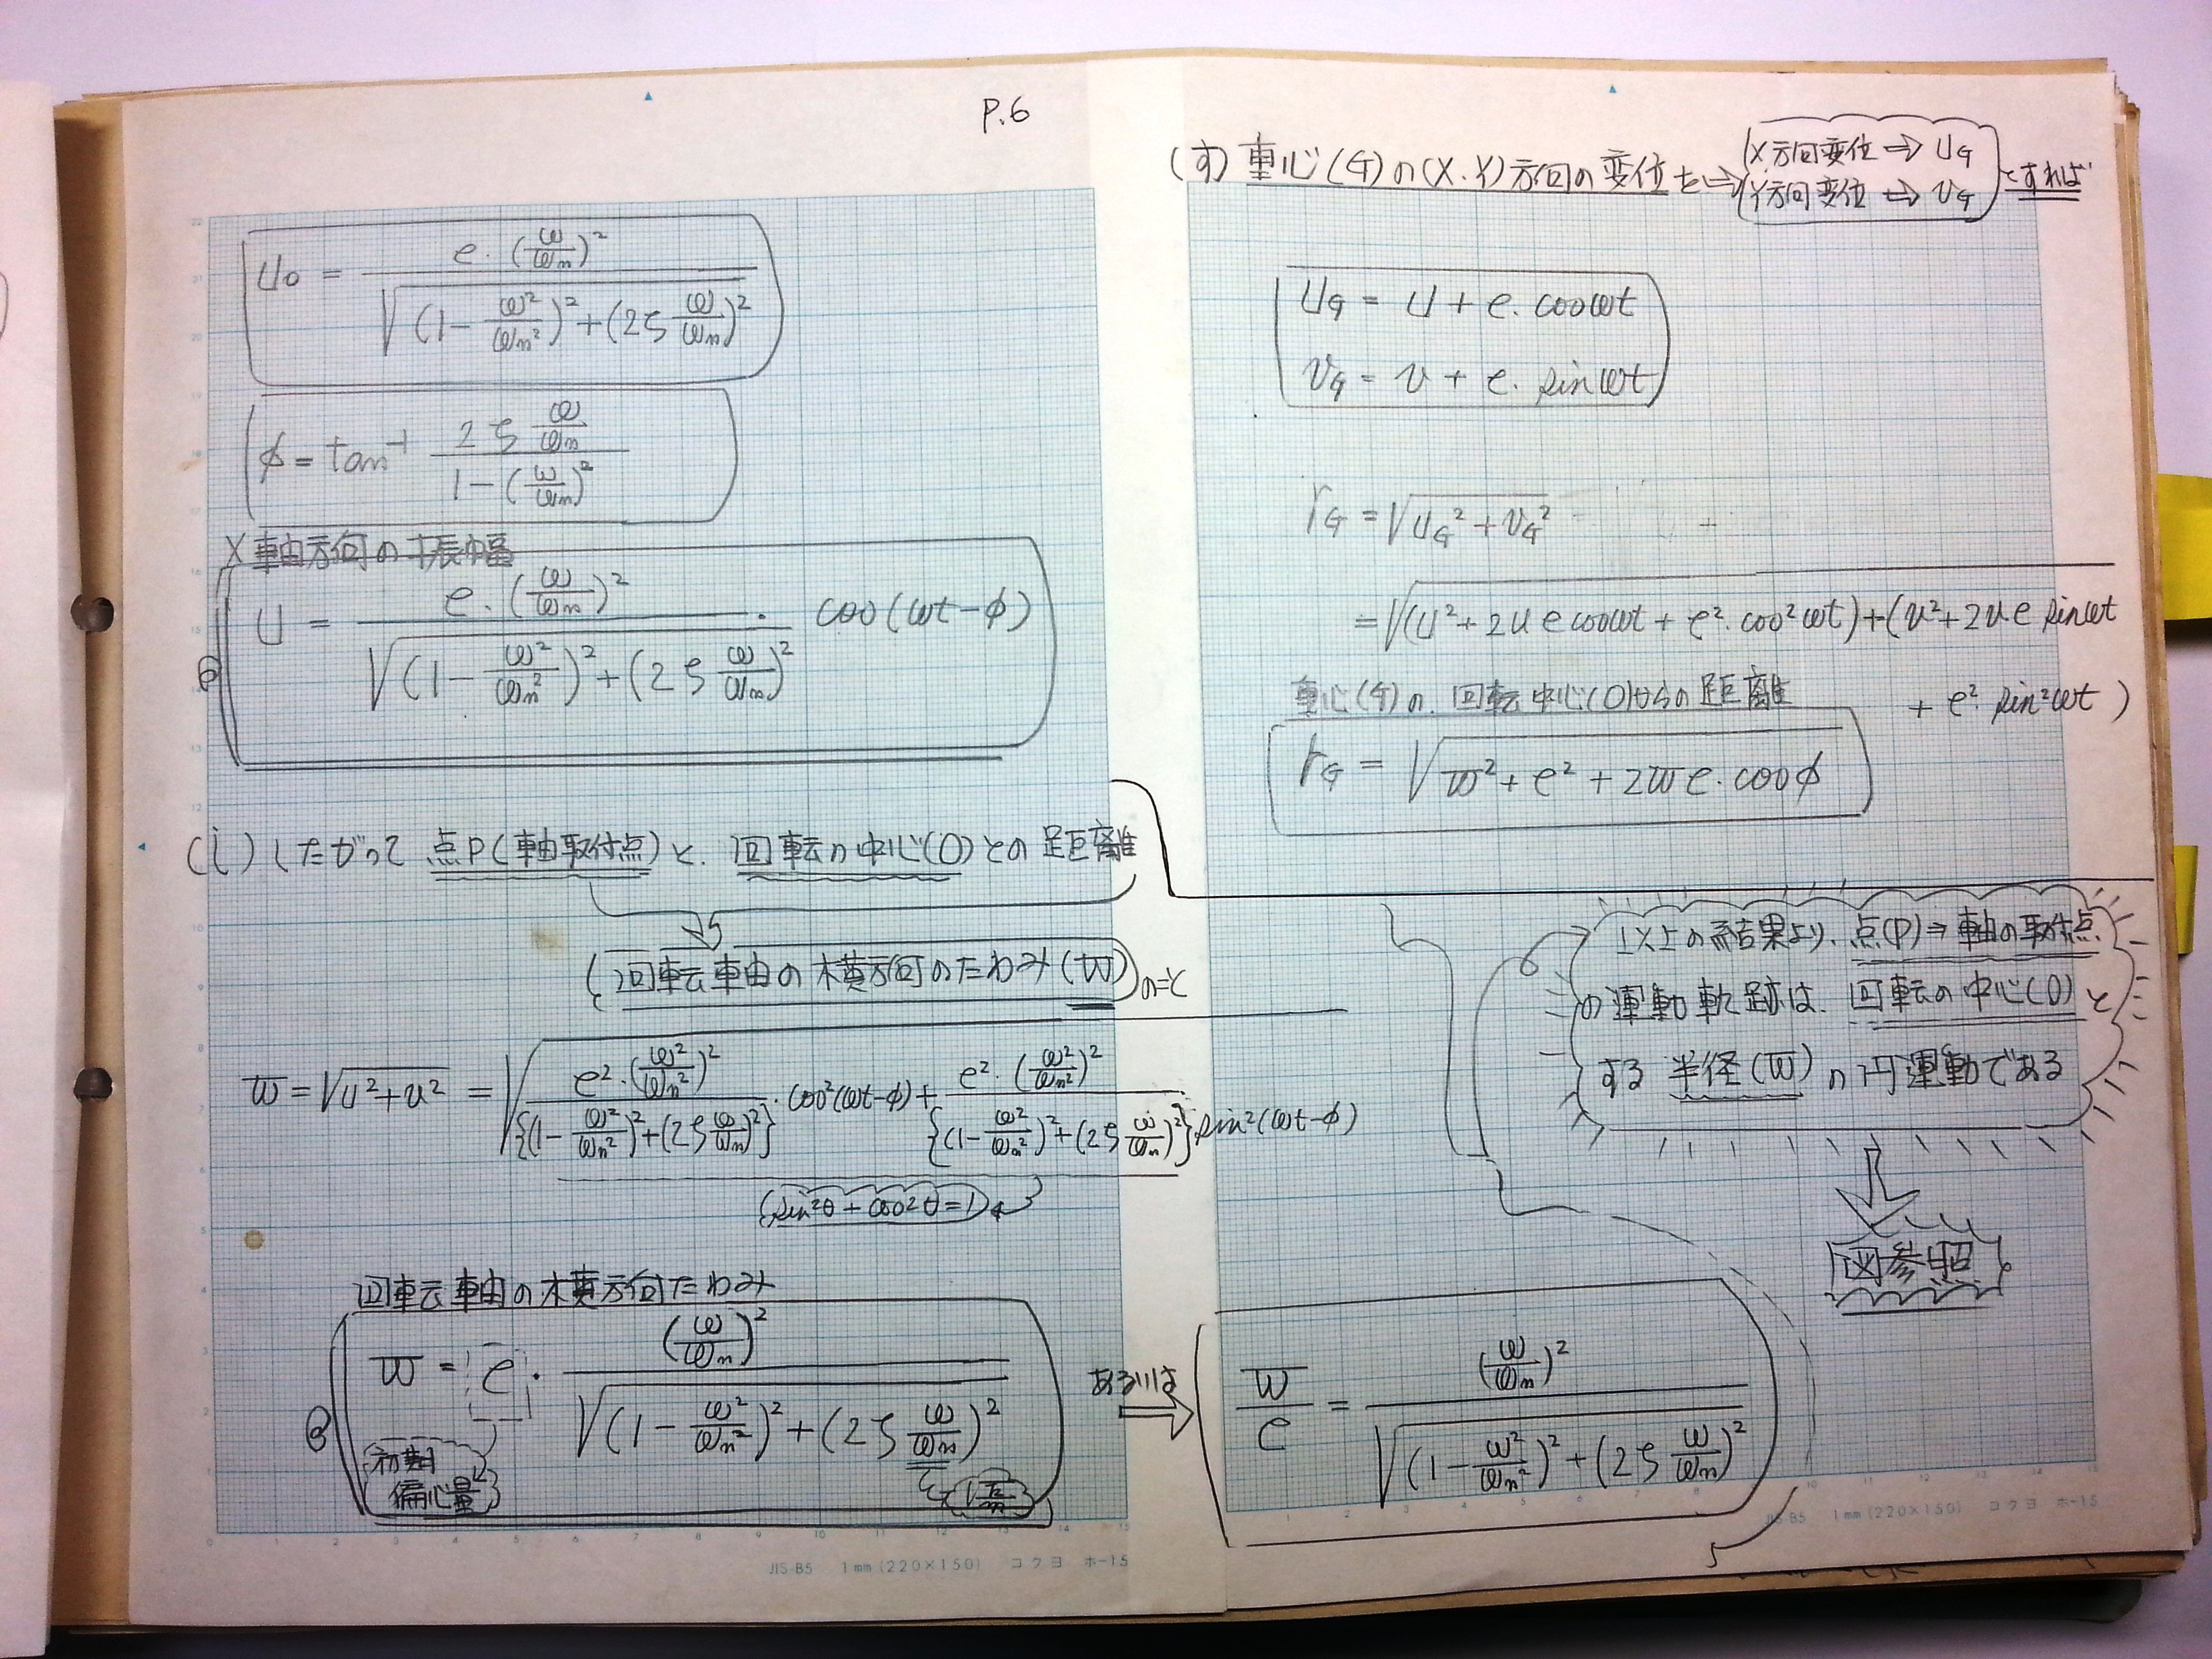 P.6
u₀ = e・(ω/ωn)² / √((1 - ω²/ωn²)² + (2ζ ω/ωn)²)
φ = tan⁻¹ 2ζ ω/ωn / 1 - (ω/ωn)²
X軸方向の振幅
u = e・(ω/ωn)² / √((1 - ω²/ωn²)² + (2ζ ω/ωn)²) ・ cos(ωt - φ)
(i) したがって 点P(軸取付点)と、回転の中心(O)との距離
(回転軸の横方向のたわみ(w))のこと
w = √u² + v² = √e²・(ω²/ωn²)² / {(1 - ω²/ωn²)² + (2ζ ω/ωn)²} ・cos²(ωt-φ) + e²・(ω²/ωn²)² / {(1 - ω²/ωn²)² + (2ζ ω/ωn)²} sin²(ωt-φ)
(sin²θ + cos²θ = 1)
回転軸の横方向たわみ
w = e・(ω/ωn)² / √((1 - ω²/ωn²)² + (2ζ ω/ωn)²)
初期
偏心量
√k/m
JIS-B5 1mm (220×150) コクヨ ホ-15
(す) 重心(G)の(X.Y)方向の変位を⇒
X方向変位 ⇒ uG
Y方向変位 ⇒ vG
とすれば
uG = u + e. cosωt
vG = v + e. sinωt
rG = √uG² + vG²
= √(u² + 2u e cosωt + e². cos²ωt) + (v² + 2v e sinωt
+ e² sin²ωt)
重心(G)の、回転中心(O)からの距離
rG = √w² + e² + 2we・cosφ
以上の結果より、点(P)⇒軸の取付点
の運動軌跡は、回転の中心(O)と
する 半径(w)の円運動である
図参照
あるいは
w/e = (ω/ωn)² / √((1 - ω²/ωn²)² + (2ζ ω/ωn)²)
JIS-B5 1mm (220×150) コクヨ ホ-15